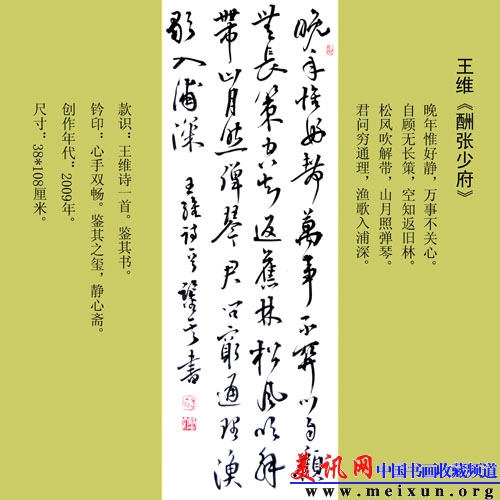 王维《酬张少府》
晚年惟好静，万事不关心。
自顾无长策，空知返旧林。
松风吹解带，山月照弹琴。
君问穷通理，渔歌入浦深。
晚年惟好静萬事不関心自顧
無長策空知返舊林松風吹解
帶山月照彈琴君问窮通理漁
歌入浦深
王維诗一首鑒其書
款识：王维诗一首。鉴其书。
钤印：心手双畅。鉴其之玺，静心斋。
创作年代：2009年。
尺寸：38*108厘米。
美讯网 中国书画收藏频道
www.meixun.org